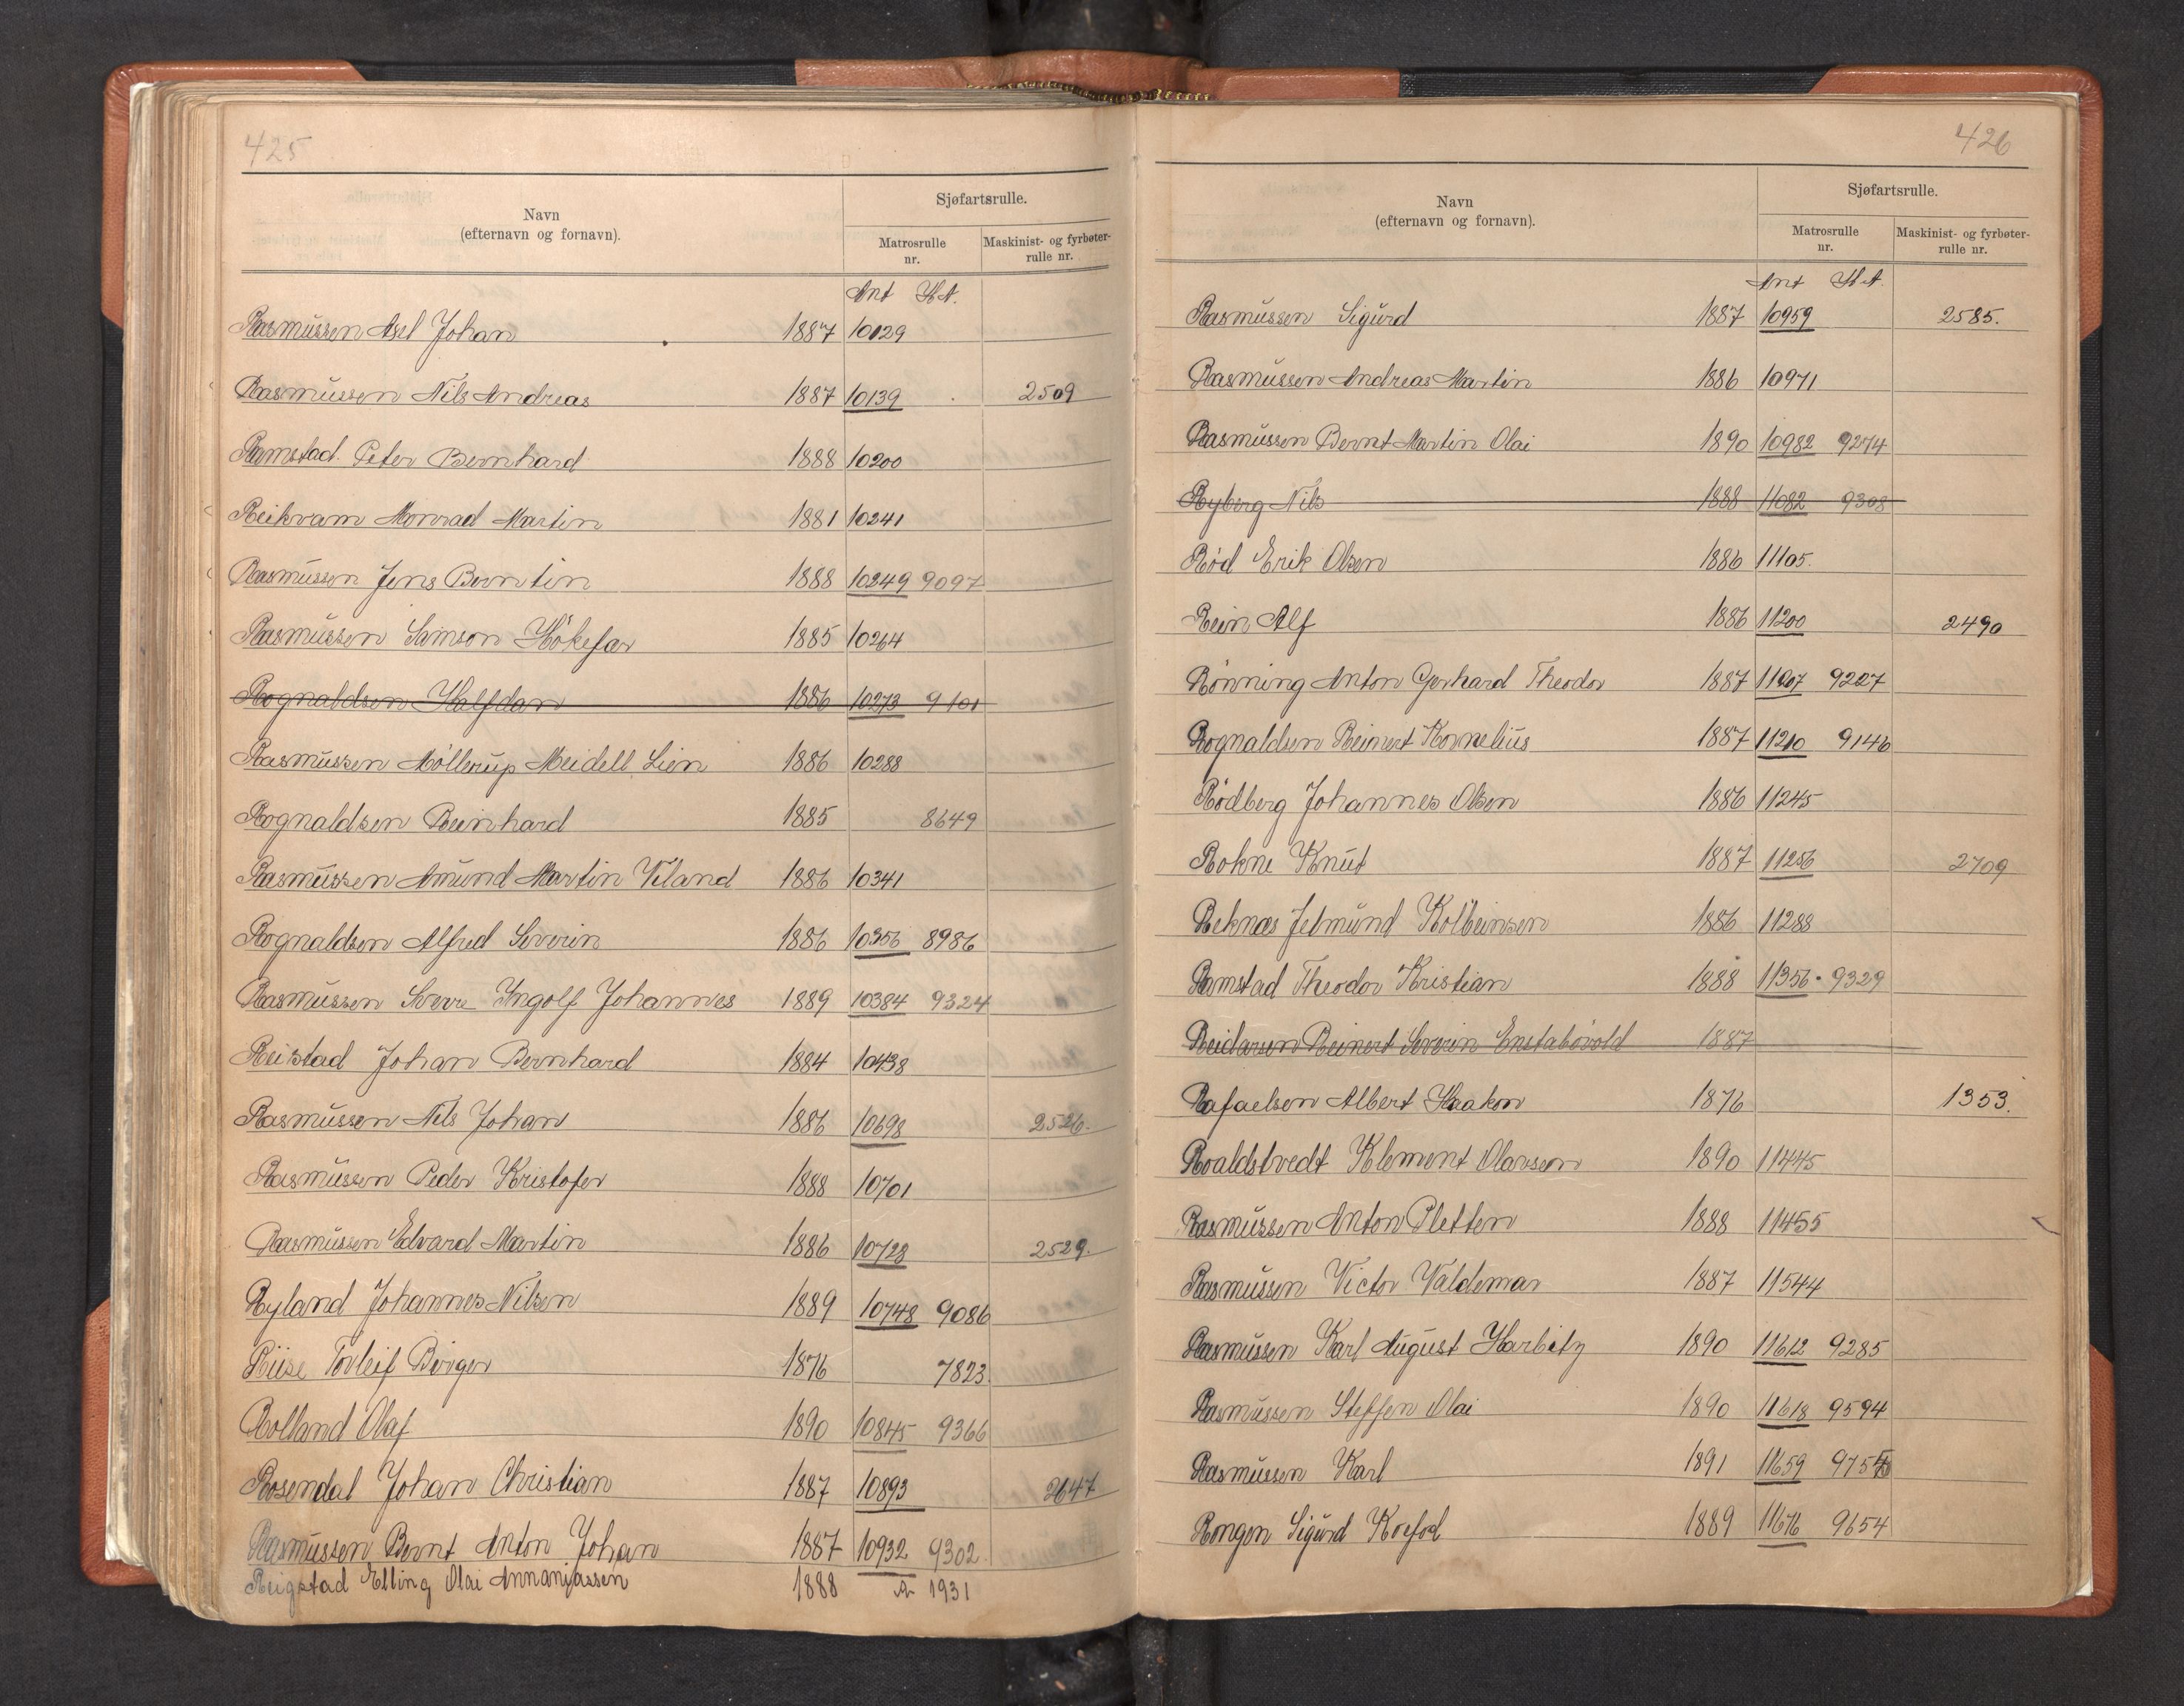 425
Navn
(efternavn og fornavn).
Sjøfartsrulle.
Matrosrulle
nr.
Maskinist- og fyrbøter-
rulle nr.
Ant H.A.
Rasmussen Axel Johan 1887 10129
Rasmussen Nils Andreas 1887 10139 2509
Ramstad Peter Bernhard 1888 10200
Reikvam Monrad Martin 1881 10241
Rasmussen Jens Berntin 1888 10249 9097
Rasmussen Samson 1885 10264
Rognaldsen Halfdan 1886 10273 9101
Rasmussen Möllerup Meidell Lien 1886 10288
Rognaldsen Reinhard 1885 8649
Rasmussen Amund Martin Veland 1886 10341
Rognaldsen Alfred Severin 1886 10356 8986
Rasmussen Sverre Ingolf Johannes 1889 10384 9324
Reistad Johan Bernhard 1884 10438
Rasmussen Nils Johan 1886 10698 2526.
Rasmussen Peder Kristofer 1888 10701
Rasmussen Edvard Martin 1886 10728 2529.
Ryland Johannes Nilsen 1889 10748 9086
Riise Torleif Birger 1876 7823.
Rolland Olaf 1890 10845 9366
Rosendal Johan Christian 1887 10893 2647
Rasmussen Bernt Anton Johan 1887 10932 9302
Reigstad Elling Olai Annaniassen 1888 1931
426
Navn
(efternavn og fornavn).
Sjøfartsrulle.
Matrosrulle
nr.
Maskinist- og fyrbøter-
rulle nr.
Ant H.A.
Rasmussen Sigurd 1887 10959 2585.
Rasmussen Andreas Martin 1886 10971
Rasmussen Bernt Martin Olai 1890 10982 9274
Ryberg Nils 1888 11082 9308
Rød Erik Olsen 1886 11105.
Rein Alf 1886 11200 2490
Rønning Anton Gerhard Theodor 1887 11207 9227
Rognaldsen Reinert Kornelius 1887 11210 9146
Rødberg Johannes Olsen 1886 11245
Rokne Knut 1887 11256 2709
Reknes Jetmund Kolbeinsen 1886 11288
Ramstad Theodor Kristian 1888 11356 9329
Reidarsen Reinert Severin Enstabøvold 1887
Rafaelsen Albert Haakon 1876 1353.
Roaldstvedt Klement Olavsen 1890 11445
Rasmussen Anton Pletten 1888 11455
Rasmussen Victor Valdemar 1887 11544
Rasmussen Karl August Harbitz 1890 11612 9285
Rasmussen Steffen Olai 1890 11618 9594
Rasmussen Karl 1891 11659
Rongen Sigurd Koefod 1889 11676 9654